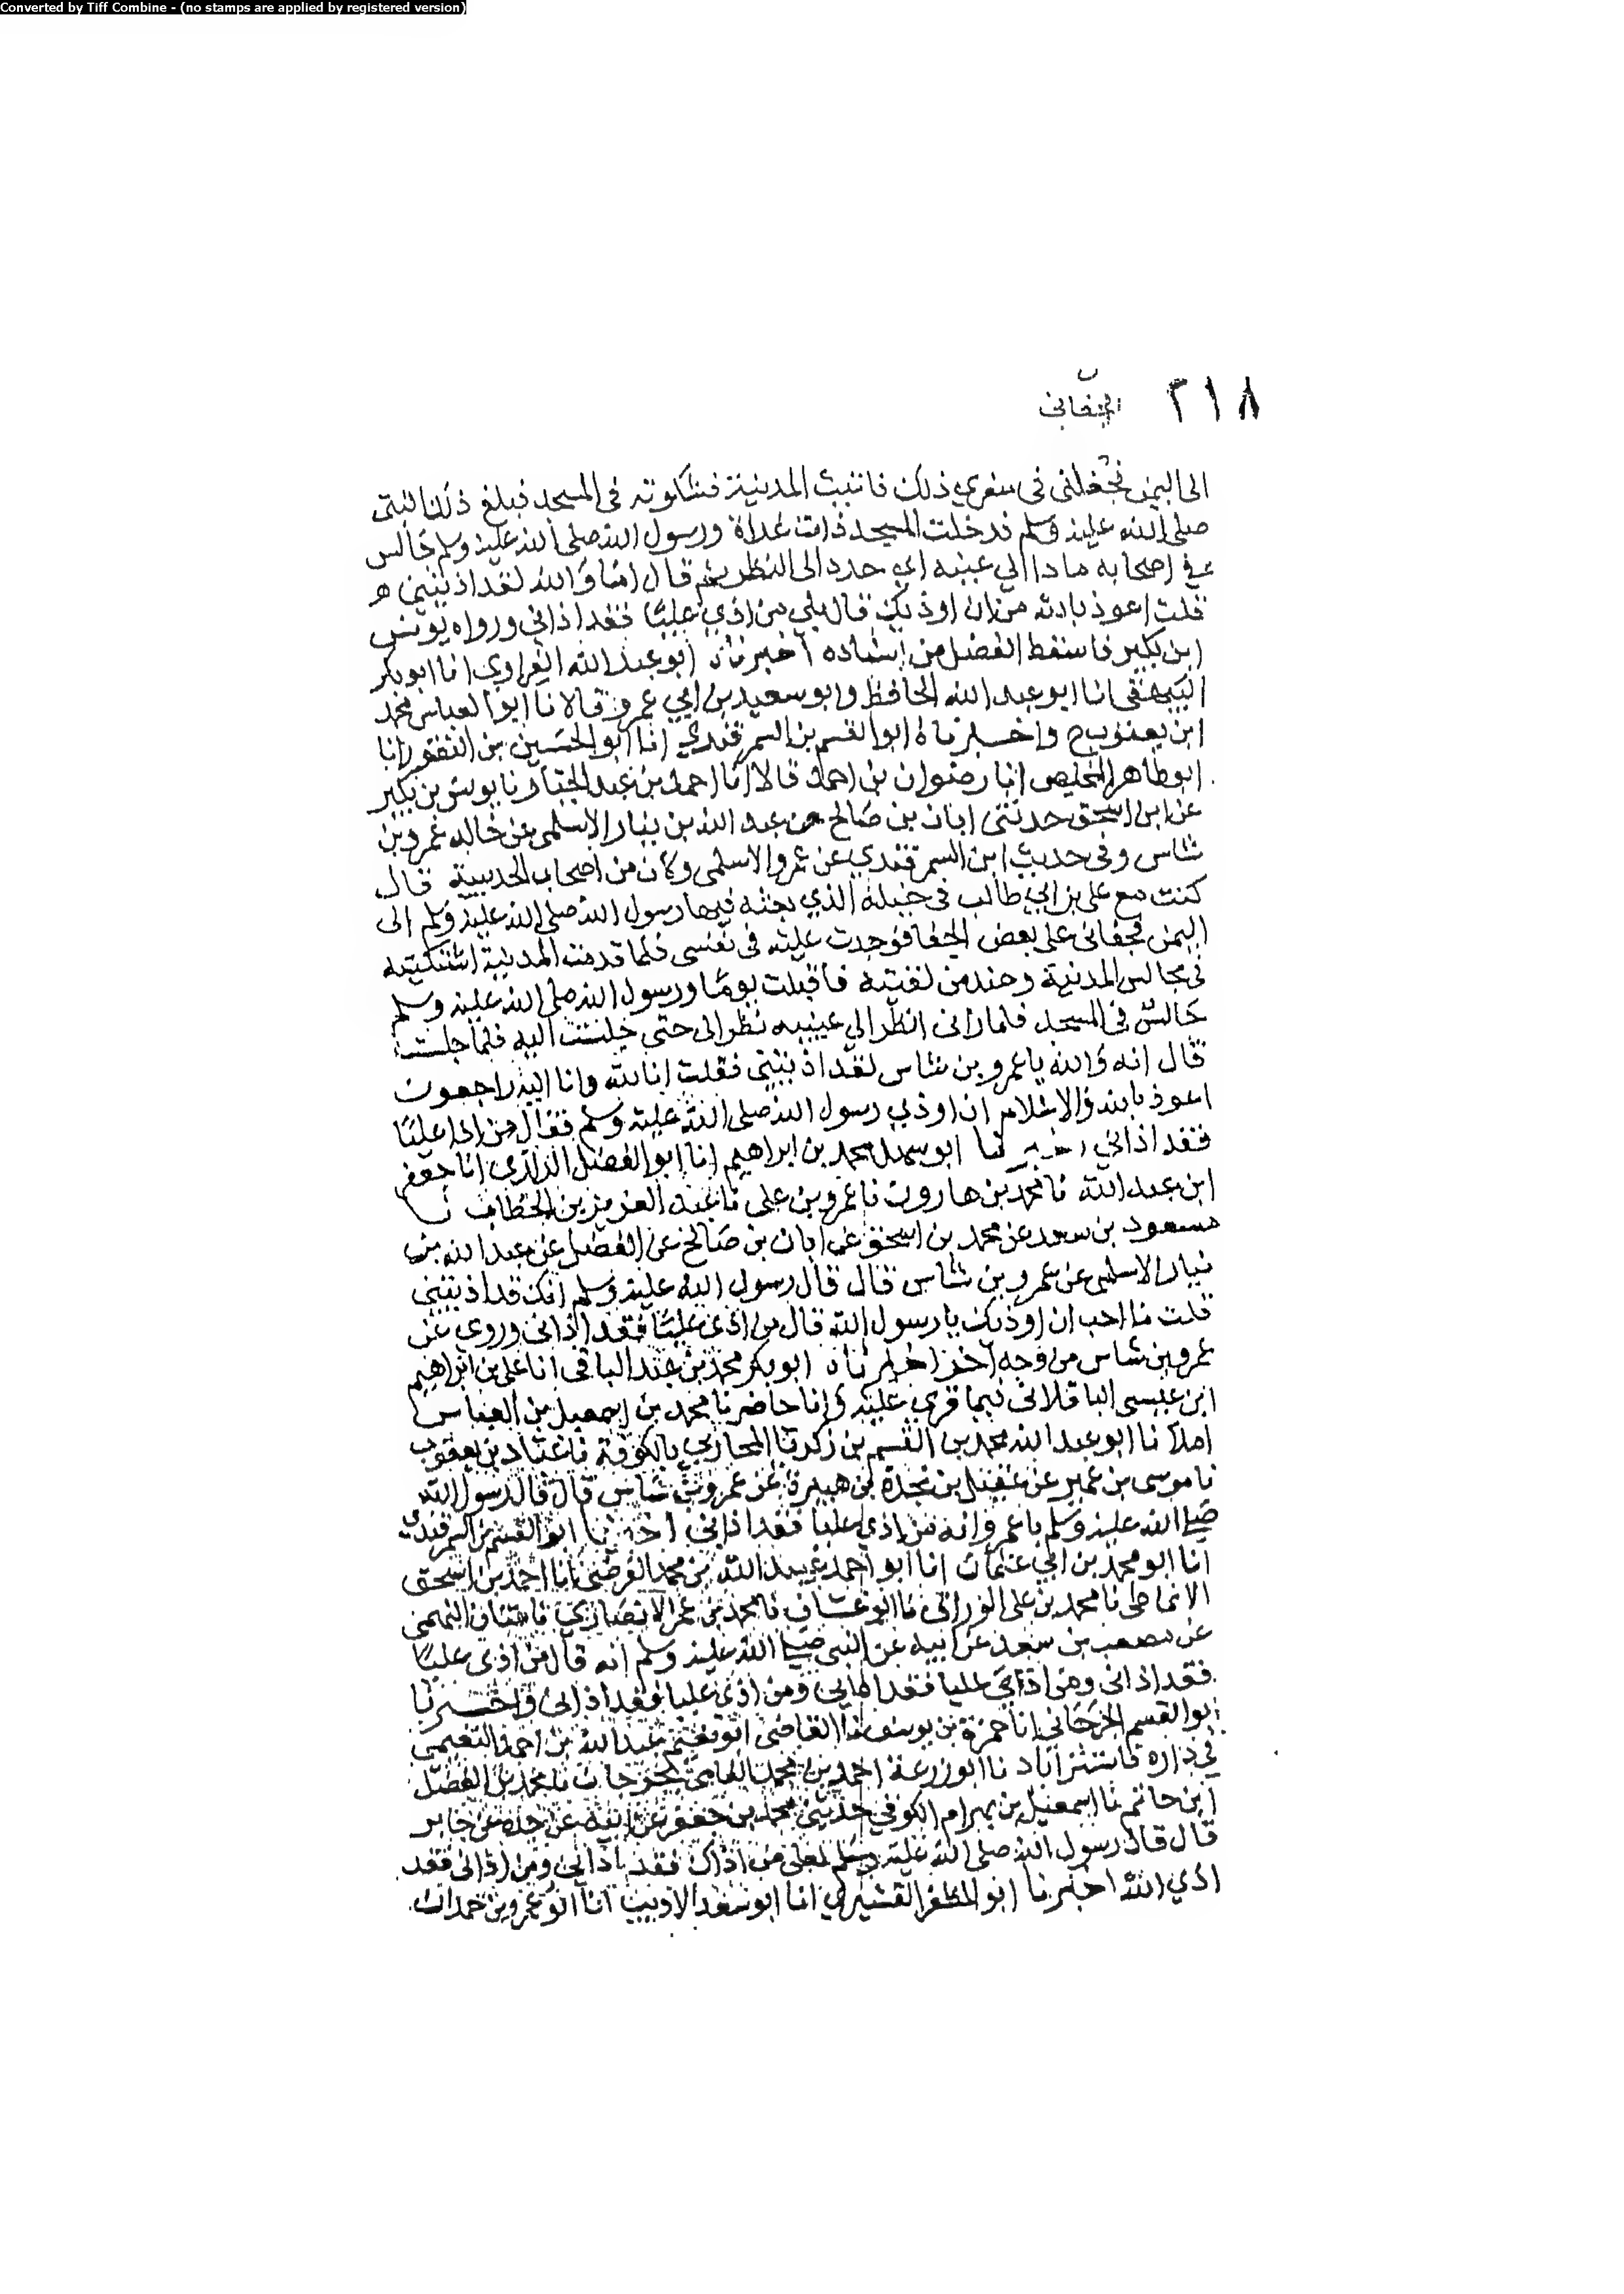 Converted by Tiff Combine - (no stamps are applied by registered version)
٢١٨
الى اليمن فجفانى فى سفري ذلك فاتيت المدينة فشكوته فى المسجد فبلغ ذلك النبى
صلى الله عليه وسلم فدخلت المسجد ذات غداة ورسول الله صلى الله عليه وسلم جالس
في اصحابه الي عينيه اي حدد الى النظر ثم قال اما والله لقد اذيتنى
قلت اعوذ بالله من ان اوذيك قال بلى من اذي عليا فقد اذانى ورواه يونس
ابن بكير فاسقط الفضل من اسناده اخبرناه ابو عبد الله الفراوي انا ابو بكر
البيهقى انا ابو عبد الله الحافظ وابو سعيد بن ابي عمرو قالا نا ابو العباس محمد
ابن يعقوب ح واخبرناه ابو القسم بن السمرقندي انا ابو الحسين بن النقور انا
ابو طاهر المخلص انا رضوان بن احمد قالا انا احمد بن عبد الجبار نا يونس بن بكير
عن ابن اسحق حدثنى ابان بن صالح عن عبد الله بن نيار الاسلمى عن خاله عمرو بن
شاس وفى حديث ابن السمرقندي عن عمرو الاسلمى وكان من اصحاب الحديبية قال
كنت مع على بن ابي طالب فى خيله الذي بعثه فيها رسول الله صلى الله عليه وسلم الى
اليمن فجفانى على بعض الجفا فوجدت عليه فى نفسى فلما قدمت المدينة اشتكيته
فى مجالس المدينة وعند من لقيته فاقبلت يوما ورسول الله صلى الله عليه وسلم
جالس فى المسجد فلما رانى انظر الي عينيه نظر الى حتى جلست اليه فلما جلست
قال انه والله يا عمرو بن شاس لقد اذيتنى فقلت انا لله وانا اليه راجعون
اعوذ بالله والاسلام ان اوذي رسول الله صلى الله عليه وسلم فقال من اذا عليا
فقد اذانى اخبرنا ابو سهل محمد بن ابراهيم انا ابو الفضل الرازى انا جعفر
ابن عبد الله نا محمد بن هارون نا عمرو بن على نا عبد العزيز بن الخطاب نا
مسعود بن سعد عن محمد بن اسحق عن ابان بن صالح عن الفضل عن عبد الله بن
نيار الاسلمى عن عمرو بن شاس قال قال رسول الله عليه وسلم انك قد اذيتنى
قلت ما احب ان اوذيك يا رسول الله قال من اذى عليا فقد اذانى وروي عن
عمرو بن شاس من وجه آخر اخبرناه ابو بكر محمد بن عبد الباقى انا على بن ابراهيم
ابن عيسى الباقلانى فيما قري عليه وانا حاضر نا محمد بن اسمعيل بن العباس
املا نا ابو عبد الله محمد بن القسم بن زكريا المحاربي بالكوفة نا عباد بن يعقوب
نا موسى بن عمير عن عقيل بن نجدة بن هبيرة عن عمرو بن شاس قال قال رسول الله
صلى الله عليه وسلم يا عمرو انه من اذي عليا فقد اذانى اخبرنا ابو القسم بن السمرقندي
انا ابو محمد بن ابي عثمان انا ابو احمد عبيد الله بن محمد الفرضى نا احمد بن اسحق
الانماطى نا محمد بن على الوراق نا ابو غسان نا محمد بن عمر الانصاري التميمى
عن مصعب بن سعد عن ابيه عن النبي صلى الله عليه وسلم انه قال من اذى عليا
فقد اذانى ومن اذى عليا فقد اذانى ومن اذى عليا فقد اذانى واخبرنا
ابو القسم الجرجانى انا حمزة بن يوسف القاضى ابو نعيم عبد الله بن احمد النعيمى
في داره باستراباد نا ابو زرعة احمد بن محمد القاضى بجرجان نا محمد بن الفضل
ابن حاتم نا اسمعيل بن بهرام الكوفي حدثنى محمد بن جعفر عن ابيه عن جده عن جابر
قال قال رسول الله صلى الله عليه وسلم لعلى من اذاك فقد اذانى ومن اذانى فقد
اذي الله اخبرنا ابو المظفر القشيري انا ابو سعد الاديب انا ابو عمرو بن حمدان